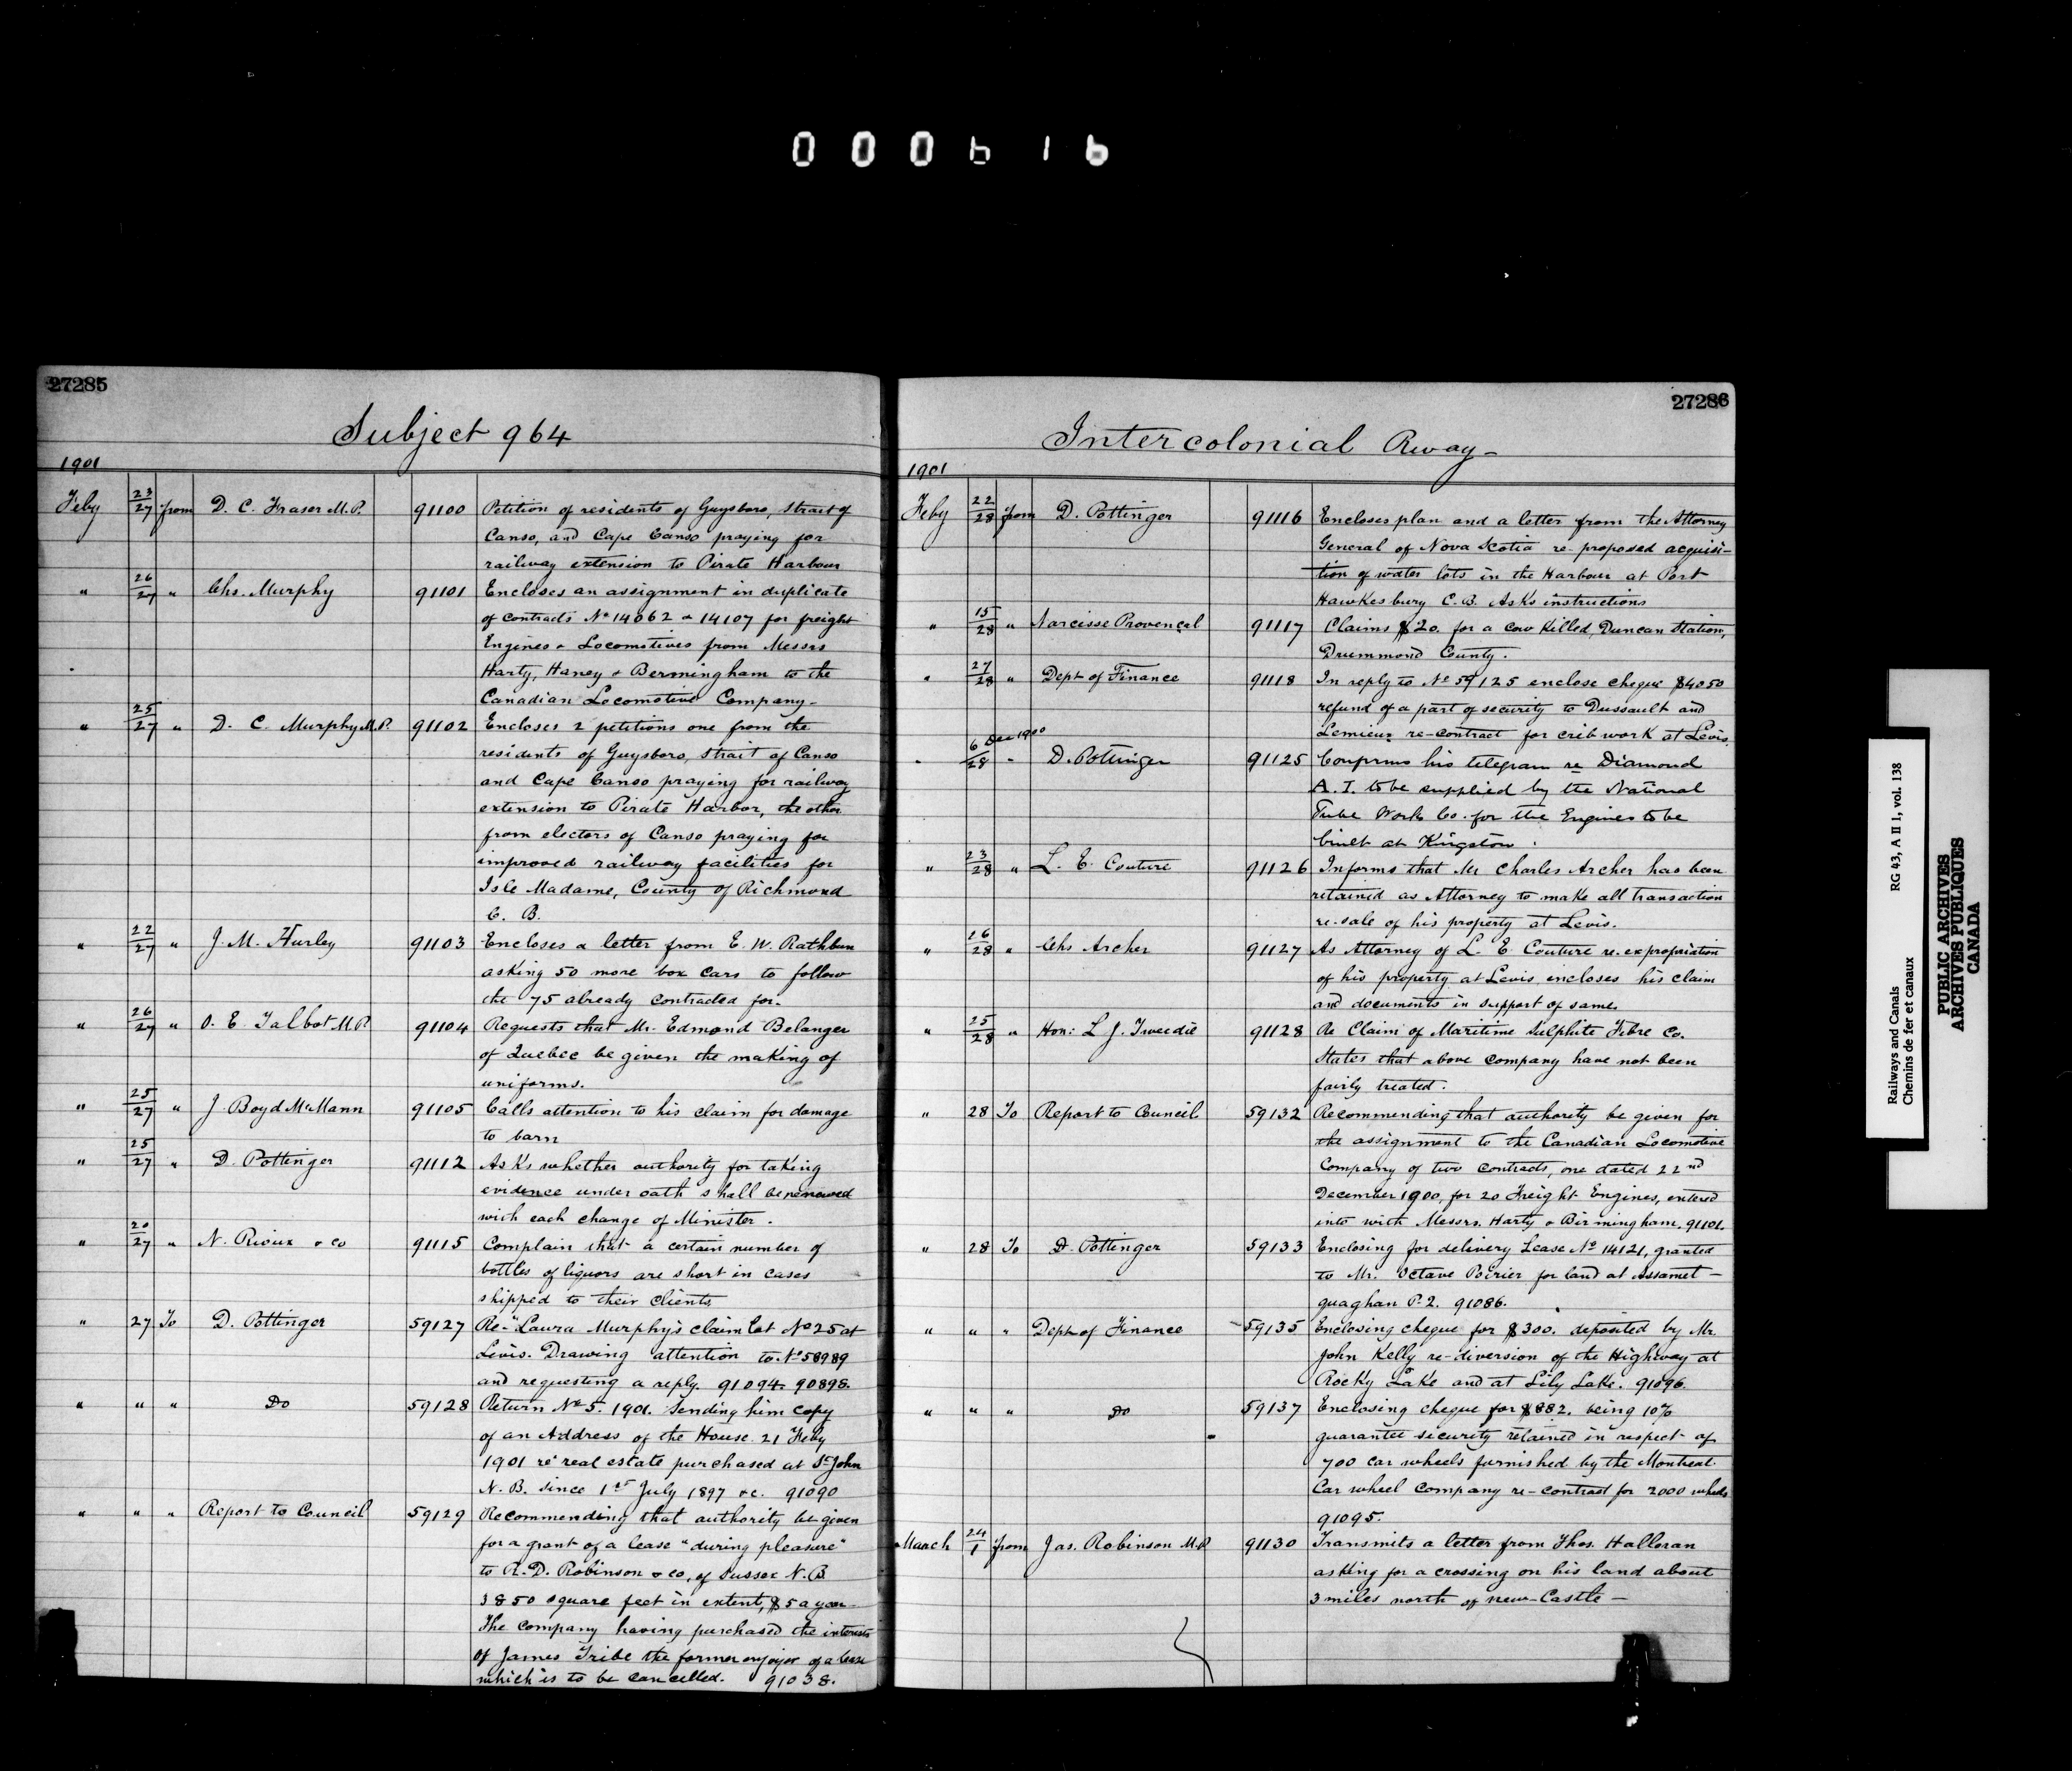 000616
27285
Subject 964
1901
Feby 23/27 from D. C. Fraser M.P. 91100 Petition of residents of Guysboro, Strait of
Canso, and Cape Canso praying for
railway extension to Pirate Harbour
" 26/27 " Chs. Murphy 91101 Encloses an assignment in duplicate
of contracts No 14062 & 14107 for freight
Engines & Locomotives from Messrs
Harty, Haney & Bermingham to the
Canadian Locomotive Company-
" 25/27 " D. C. Murphy M.P. 91102 Encloses 2 petitions one from the
residents of Guysboro, Strait of Canso
and Cape Canso praying for railway
extension to Pirate Harbor, the other
from electors of Canso praying for
improved railway facilities for
Isle Madame, County of Richmond
C. B.
" 22/27 " J. M. Hurley 91103 Encloses a letter from E. W. Rathbun
asking 50 more box cars to follow
the 75 already contracted for.
" 26/27 " O. E. Talbot M.P. 91104 Requests that Mr. Edmond Belanger
of Quebec be given the making of
uniforms.
" 25/27 " J. Boyd McMann 91105 Calls attention to his claim for damage
to barn
" 25/27 " D. Pottinger 91112 Asks whether authority for taking
evidence under oath shall be renewed
with each change of Minister.
" 20/27 " N. Rioux & Co 91115 Complain that a certain number of
bottles of liquors are short in cases
shipped to their clients.
" 27 To D. Pottinger 59127 Re- Laura Murphy's claim lot No 25 at
Levis. Drawing attention to No 58989
and requesting a reply. 91094. 90898.
" " " Do 59128 Return No 5. 1901. Sending him copy
of an Address of the House. 21 Feby
1901 re real estate purchased at St. John
N. B. since 1st July 1897 &c. 91090
" " " Report to Council 59129 Recommending that authority be given
for a grant of a lease "during pleasure"
to R. D. Robinson & Co, of Sussex N. B.
3850 square feet in extent, $5 a year-
The company having purchased the interests
of James Tribe the former enjoyor of a lease
which is to be cancelled. 91038.
27286
Intercolonial Rway-
1901
Feby 22/28 from D. Pottinger 91116 Encloses plan and a letter from the Attorney
General of Nova Scotia re- proposed acquisi-
tion of water lots in the Harbour at Port
Hawkesbury C. B. Asks instructions
" 15/28 " Narcisse Provençal 91117 Claims $20. for a cow killed, Duncan Station,
Drummond County.
" 27/28 " Dept of Finance 91118 In reply to No 59125 enclose cheque $4050
refund of a part of security to Dussault and
Lemieux re-contract for crib work at Levis.
" 6 Dec 1900/28 " D. Pottinger 91125 Confirms his telegram re Diamond
A. I. to be supplied by the National
Tube Works Co. for the Engines to be
built at Kingston.
" 23/28 " L. E. Couture 91126 Informs that Mr Charles Archer has been
retained as Attorney to make all transaction
re-sale of his property at Levis.
" 26/28 " Chs Archer 91127 As Attorney of L. E Couture re-expropriation
of his property at Levis encloses his claim
and documents in support of same.
" 25/28 " Hon: L J. Tweedie 91128 Re Claim of Maritime Sulphite Fibre Co.
States that above company have not been
fairly treated.
" 28 To Report to Council 59132 Recommending that authority be given for
the assignment to the Canadian Locomotive
Company of two contracts, one dated 22nd
December 1900, for 20 Freight Engines, entered
into with Messrs. Harty & Birmingham. 91101.
" 28 To D. Pottinger 59133 Enclosing for delivery Lease No 14121, granted
to Mr. Octave Poirier for land at Assamet-
quaghan P. 2. 91086.
" " " Dept of Finance 59135 Enclosing cheque for $300. deposited by Mr.
John Kelly re-diversion of the Highway at
Rocky Lake and at Lily Lake. 91096.
" " " Do 59137 Enclosing cheque for $882. being 10%
guarantee security retained in respect of
700 car wheels furnished by the Montreal
Car wheel Company re-contract for 2000 wheels
91095.
March 24/1 from Jas. Robinson M.P 91130 Transmits a letter from Thos. Halloran
asking for a crossing on his land about
3 miles north of New-Castle-
Railways and Canals RG 43, A II 1, vol. 138
Chemins de fer et canaux
PUBLIC ARCHIVES
ARCHIVES PUBLIQUES
CANADA